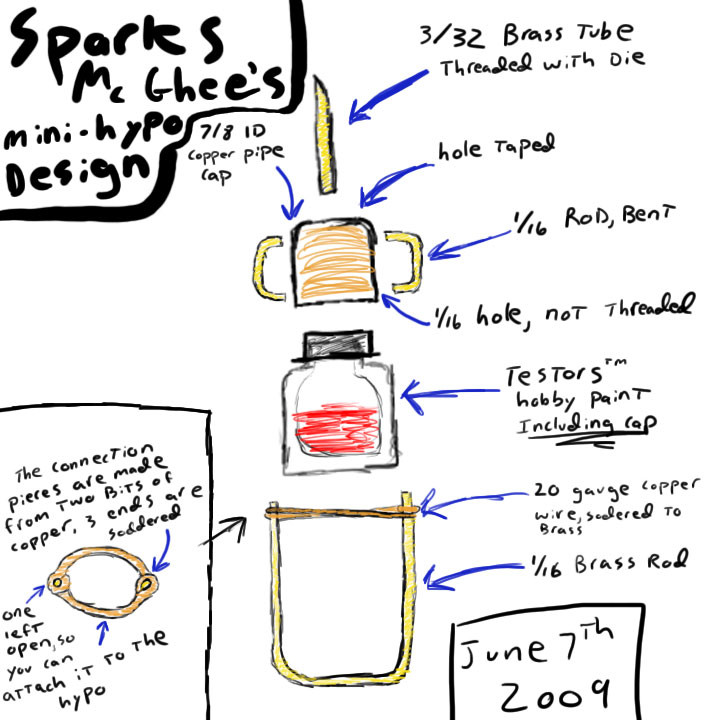 Sparks
Mc Ghee's
mini-hypo
Design
3/32 Brass Tube
Threaded with Die
7/8 ID
copper pipe
cap
hole Taped
1/16 Rod, Bent
1/16 hole, not Threaded
Testors™
hobby paint
Including cap
The connection
pieces are made
from two bits of
copper, 3 ends are
soddered
one
left
open, so
you can
attach it to the
hypo
20 gauge copper
wire, sodered to
Brass
1/16 Brass Rod
June 7Th
2009